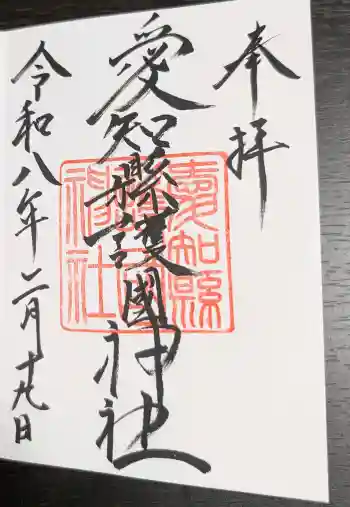 奉拝
愛知縣護國神社
愛知縣護國神社
令和八年二月十九日